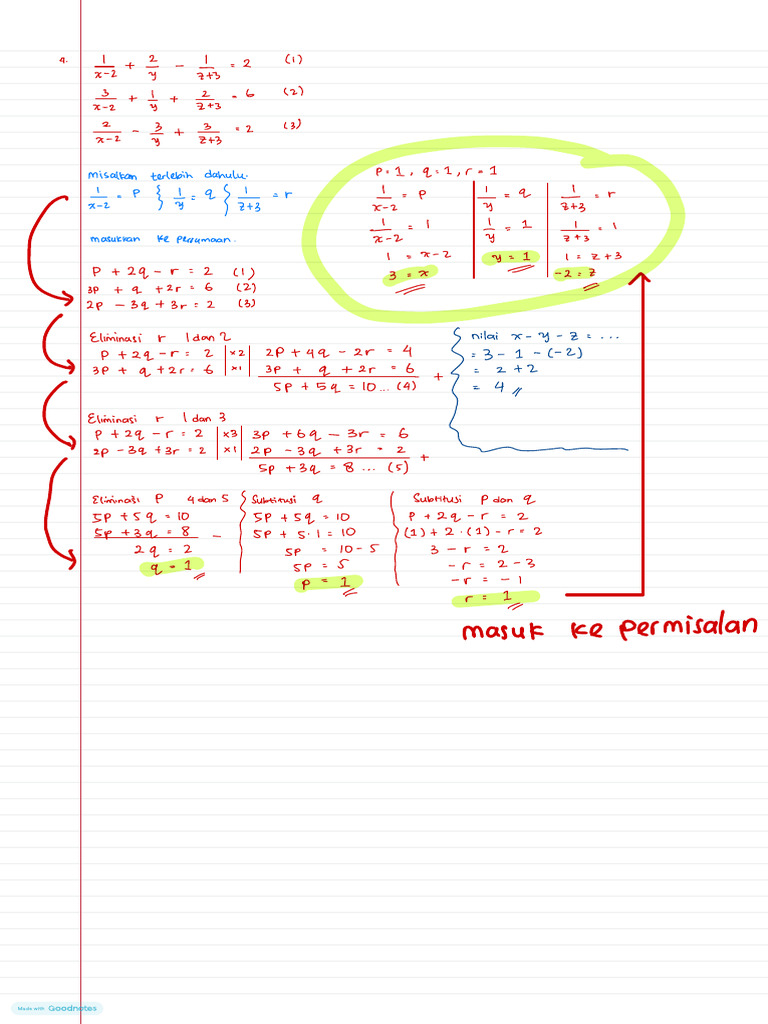 4. 1/(x-2) + 2/y - 1/(z+3) = 2 (1)
3/(x-2) + 1/y + 2/(z+3) = 6 (2)
2/(x-2) - 3/y + 3/(z+3) = 2 (3)
misalkan terlebih dahulu.
1/(x-2) = P } 1/y = q { 1/(z+3) = r
masukkan ke persamaan.
P + 2q - r = 2 (1)
3P + q + 2r = 6 (2)
2P - 3q + 3r = 2 (3)
P = 1, q = 1, r = 1
1/(x-2) = P | 1/y = q | 1/(z+3) = r
1/(x-2) = 1 | 1/y = 1 | 1/(z+3) = 1
1 = x-2 | y = 1 | 1 = z+3
3 = x | -2 = z
Eliminasi r 1 dan 2
P + 2q - r = 2 | x2 | 2P + 4q - 2r = 4
3P + q + 2r = 6 | x1 | 3P + q + 2r = 6 +
5P + 5q = 10 ... (4)
nilai x - y - z = ...
= 3 - 1 - (-2)
= 2 + 2
= 4
Eliminasi r 1 dan 3
P + 2q - r = 2 | x3 | 3P + 6q - 3r = 6
2P - 3q + 3r = 2 | x1 | 2P - 3q + 3r = 2 +
5P + 3q = 8 ... (5)
Eliminasi P 4 dan 5
5P + 5q = 10
5P + 3q = 8 -
2q = 2
q = 1
Subtitusi q
5P + 5q = 10
5P + 5·1 = 10
5P = 10 - 5
5P = 5
P = 1
Subtitusi P dan q
P + 2q - r = 2
(1) + 2·(1) - r = 2
3 - r = 2
-r = 2 - 3
-r = -1
r = 1
masuk ke permisalan
Made with Goodnotes